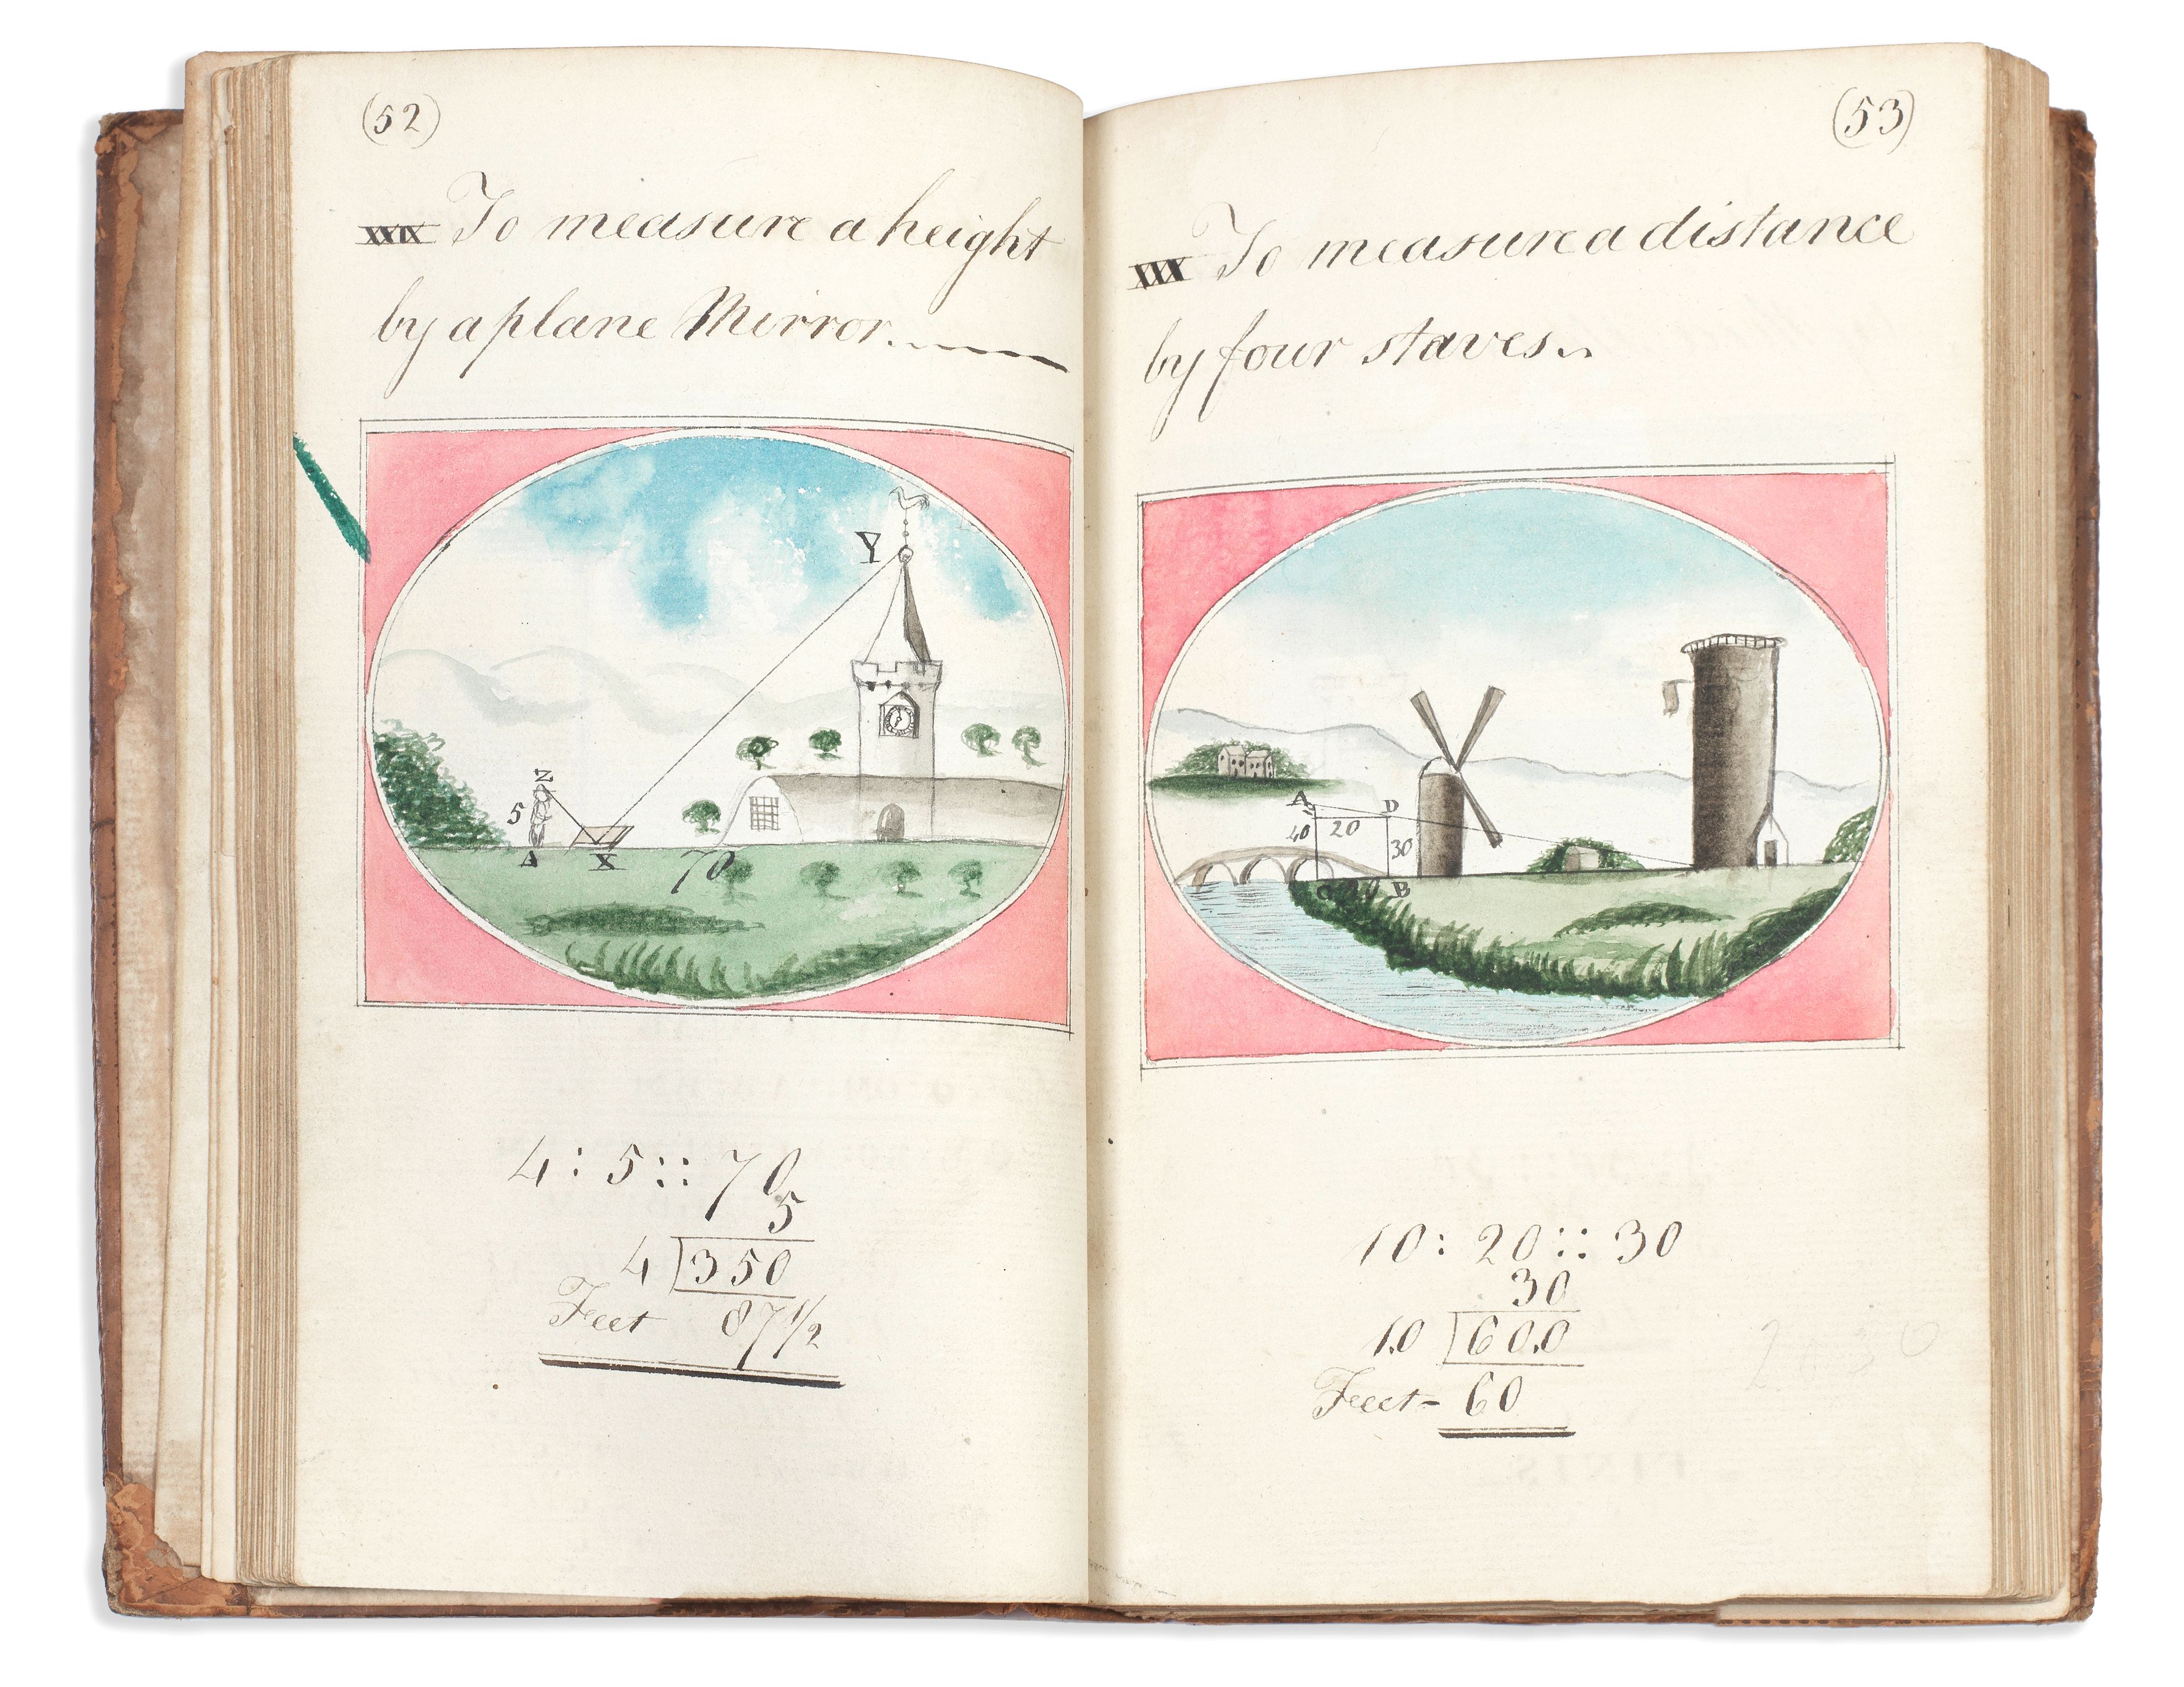 (52)
XXIX To measure a height
by a plane Mirror.
Y
Z
5
A
X
70
4 : 5 :: 70
5
4 350
Feet 87 1/2
(53)
XXX To measure a distance
by four staves.
A D
40 20
30
C 20 B
10 : 20 :: 30
30
1.0 60.0
Feet - 60